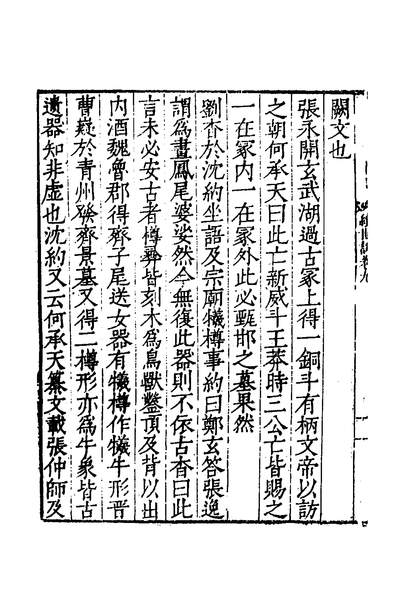 闕文也
張永開玄武湖過古冢上得一銅斗有柄文帝以訪
之朝何承天曰此亡新威斗王莽時三公亡皆賜之
一在冢內一在冢外此必甄邯之墓果然
劉杳於沈約坐語及宗廟犧樽事約曰鄭玄答張逸
謂爲畫鳳尾婆娑然今無復此器則不依古杳曰此
言未必安古者樽彝皆刻木爲鳥獸鑿頂及背以出
內酒魏魯郡得齊子尾送女器有犧樽作犧牛形晋
曹嶷於青州發齊景墓又得二樽形亦爲牛象皆古
遺器知非虛也沈約又云何承天纂文載張仲師及